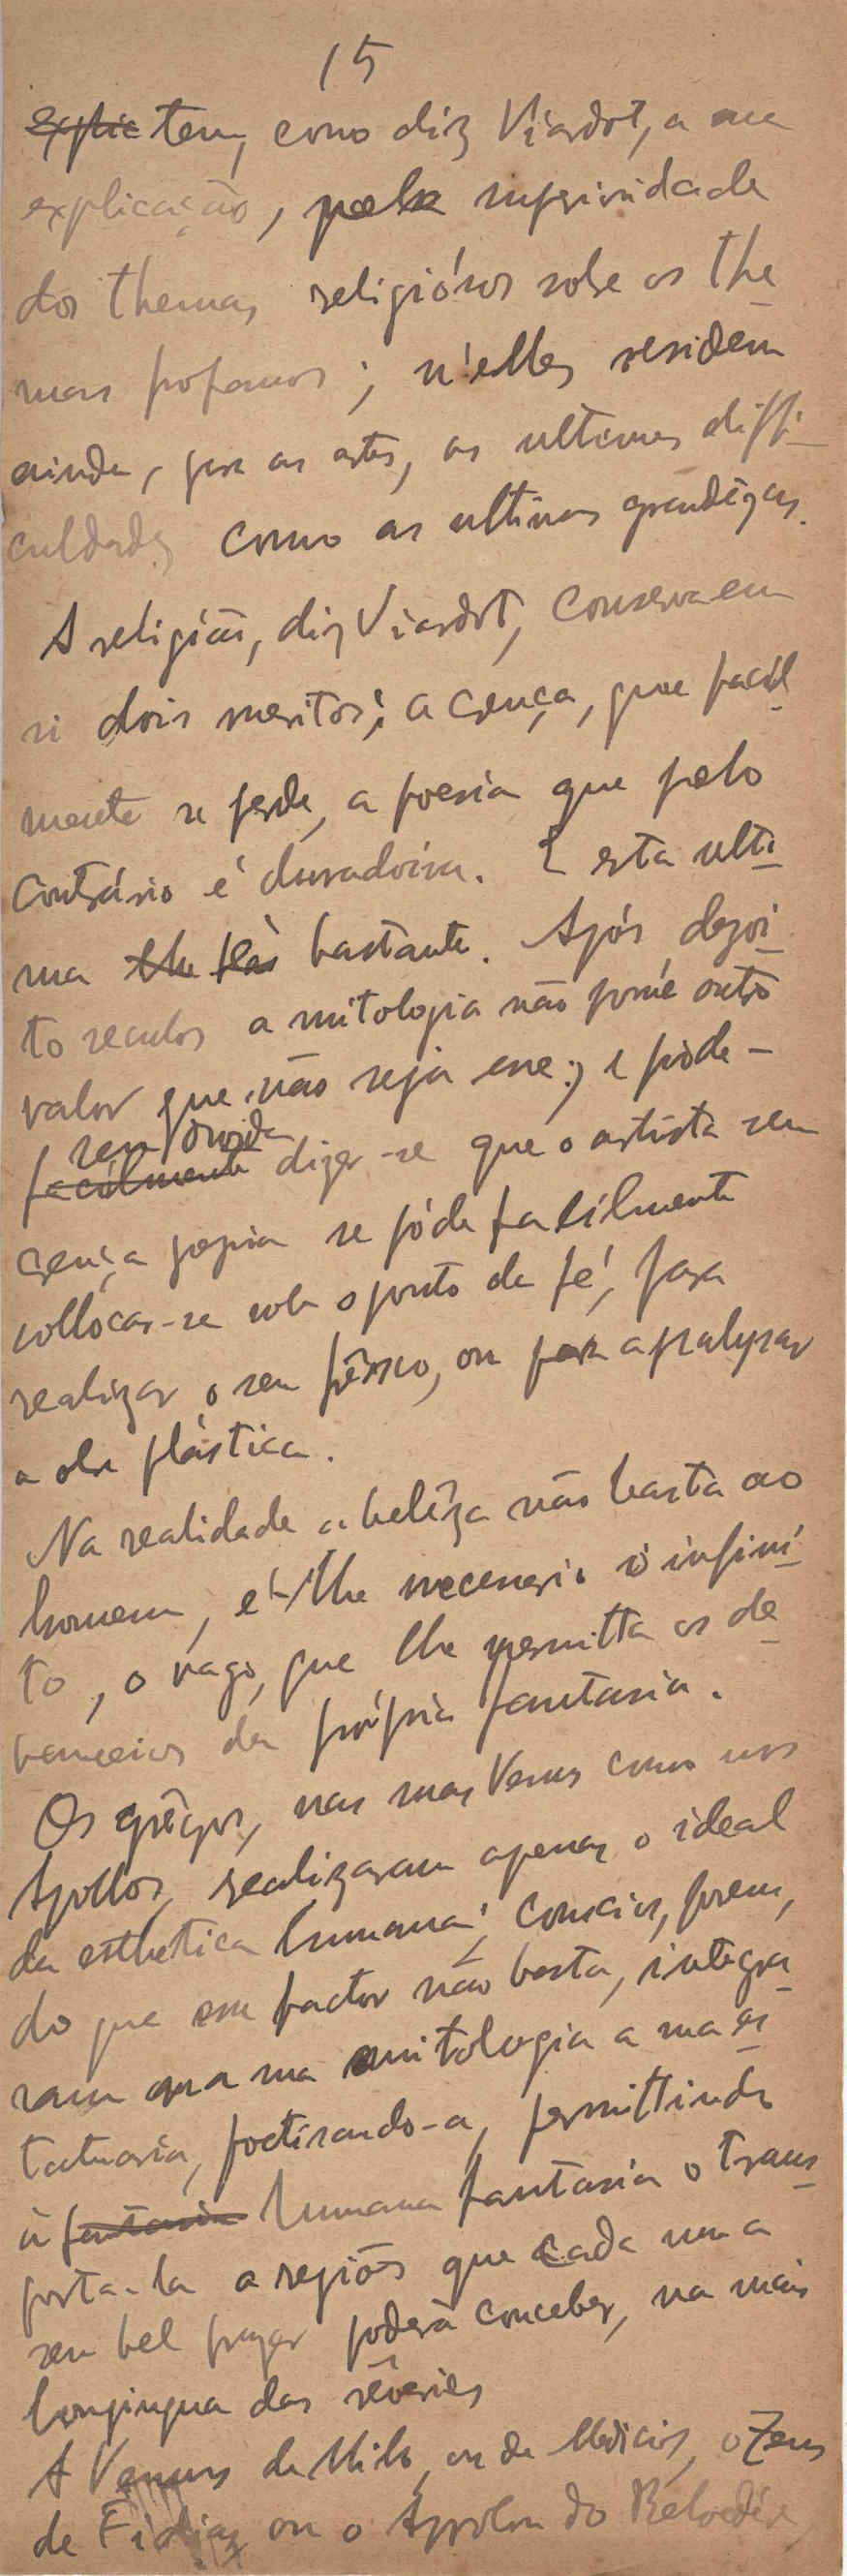 15
explic tem, como diz Viardot, a sua
explicação, pela superioridade
dos themas religiósos sobre os the
mas profanos; n'elles residem
ainda, para as artes, as ultimas diffi-
culdades como as ultimas grandêzas.
A religião, diz Viardot, conserva em
si dois meritos; a crença, que facíl
mente se perde, a poesia que pelo
contrário é duradoira. E esta ulti
ma bastante. Após dezoi
to seculos a mitologia não possúe outro
valor que não seja esse; e póde-
sem duvida
facilmente dizer-se que o artista sem
crença propria se póde facílmente
collócar-se sob o ponto da fé, para
realizar o seu frêsco, ou para
a obra plástica.
Na realidade a belêza não basta ao
homem, é-lhe necessario o infini
to, o vago, que lhe permitta os de
vaneios da própria fantasia.
Os grêgos, nas suas Venus como nos
Apollos, realizaram apenas o ideal
da esthetica humana; conscios, porem,
do que esse factor não basta, integra
ram na sua mitologia a sua es
tatuaria, poetisando-a, permittindo
á fantasia humana fantasia o trans
porta-la a regiões que cada um a
seu bel prazer poderá conceber, na mais
longinqua das rêveries
A Venus de Milo, ou de Médicis, o Zeus
de Fidias ou o Appolon do Belvedére,